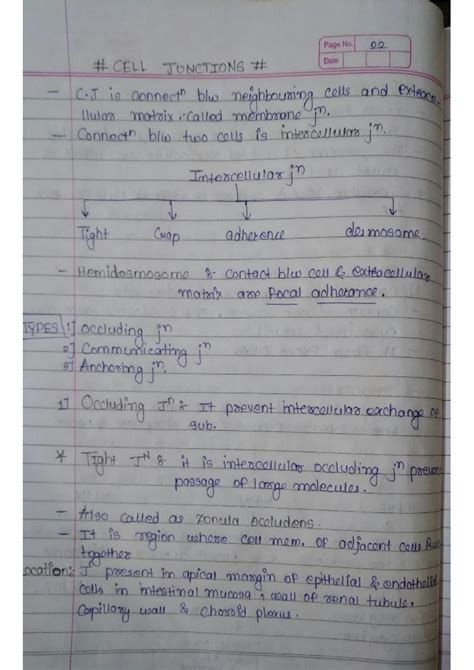 Page No. 22
Date
# CELL JUNCTIONS #
- C.J is connectn b/w neighbouring cells and extrace
llular matrix. called membrane jn.
- Connectn b/w two cells is intercellular jn.
Intercellular jn
Tight Gap adherence desmosome
- Hemidosmosome & contact b/w cell & extracellular
matrix are Focal adherance.
TYPES 1] occluding jn
2] Communicating jn
3] Anchoring jn.
1] Occluding Jn: It prevent intercellular exchange of
sub.
* Tight JN: it is intercellular occluding jn preven
passage of large molecules.
- Also called as zonula occludens.
- It is region where cell mem. of adjacent cells fuse
together
ocation: J present in apical margin of epithelial & endothelial
cells in intestinal mucosa, wall of renal tubule,
Capillary wall & choroid plexus.